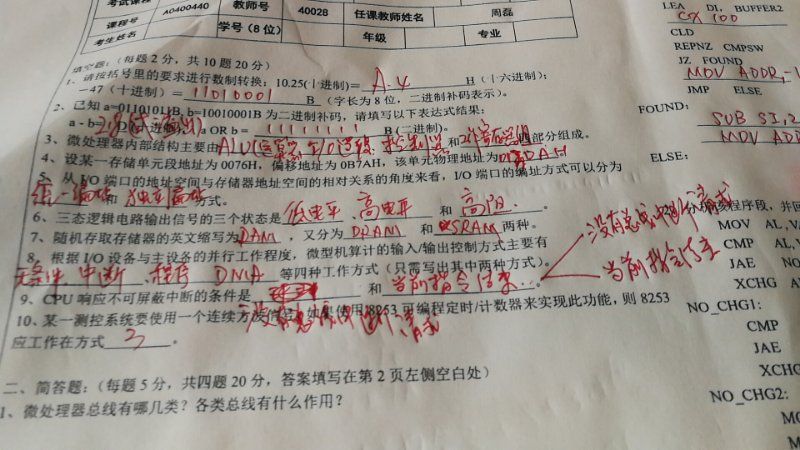 考试课程
课程号 A0400440 教师号 40028 任课教师姓名 周磊
考生姓名 学号(8位) 年级 专业
填空题:(每题2分,共10题20分)
1、请按括号里的要求进行数制转换:10.25(十进制)= A.4 H(十六进制);
-47(十进制)= 11010001 B (字长为8位,二进制补码表示)。
2、已知 a=01101011B, b=10010001B 为二进制补码,请填写以下表达式结果:
a - b= 218(溢出) D(十进制), a OR b = 11111111 B(二进制)。
3、微处理器内部结构主要由 ALU(运算器) 和 部分组成。
4、设某一存储单元段地址为0076H,偏移地址为0B7AH,该单元物理地址为 H
5、从I/O端口的地址空间与存储器地址空间的相对关系的角度来看,I/O端口的编址方式可以分为
统一编址 和 独立编址 方式。
6、三态逻辑电路输出信号的三个状态是 低电平、高电平 和 高阻。
7、随机存取存储器的英文缩写为 RAM,又分为 DRAM 和 SRAM 两种。
8、根据I/O设备与主设备的并行工作程度,微型机算计的输入/输出控制方式主要有
无条件 中断、程序 DMA 等四种工作方式(只需写出其中两种方式)。
9、CPU响应不可屏蔽中断的条件是 和 当前指令结束。
没有总线请求
当前指令结束
10、某一测控系统要使用一个连续方波信号,如果使用8253可编程定时/计数器来实现此功能,则8253
应工作在方式 3 。
二、简答题:(每题5分,共四题20分,答案填写在第2页左侧空白处)
1、微处理器总线有哪几类?各类总线有什么作用?
LEA DI, BUFFER2
CX 100
CLD
REPNZ CMPSW
JZ FOUND
MOV ADDR, -1
JMP ELSE
FOUND:
SUB SI, 2
MOV ADD
ELSE:
分析该程序段,并回
MOV AL, VA
CMP AL, V
JAE NO
XCHG A
NO_CHG1:
CMP
JAE
XCHG
NO_CHG2:
MO